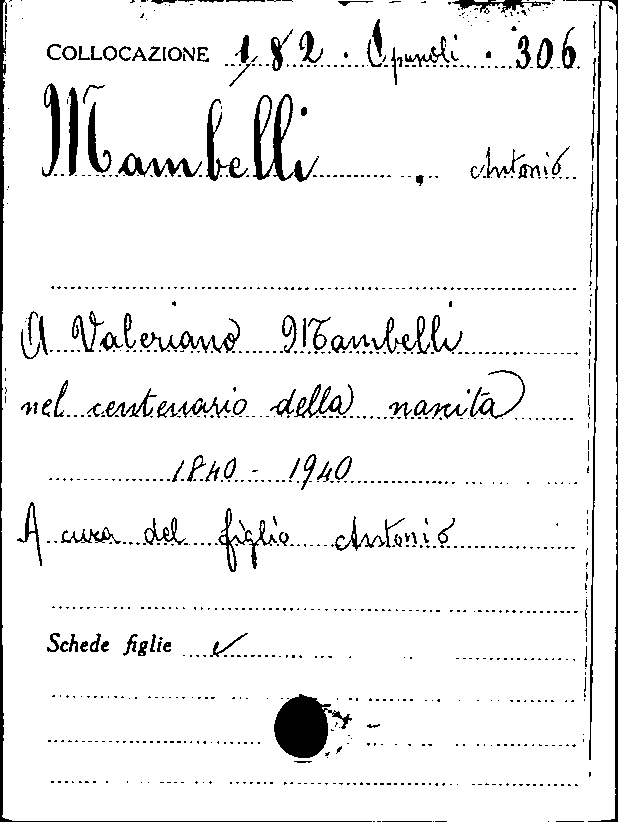 COLLOCAZIONE 182 . Opuscoli . 306
Mambelli , Antonio
A Valeriano Mambelli
nel centenario della nascita
1840 - 1940
A cura del figlio Antonio
Schede figlie ✓